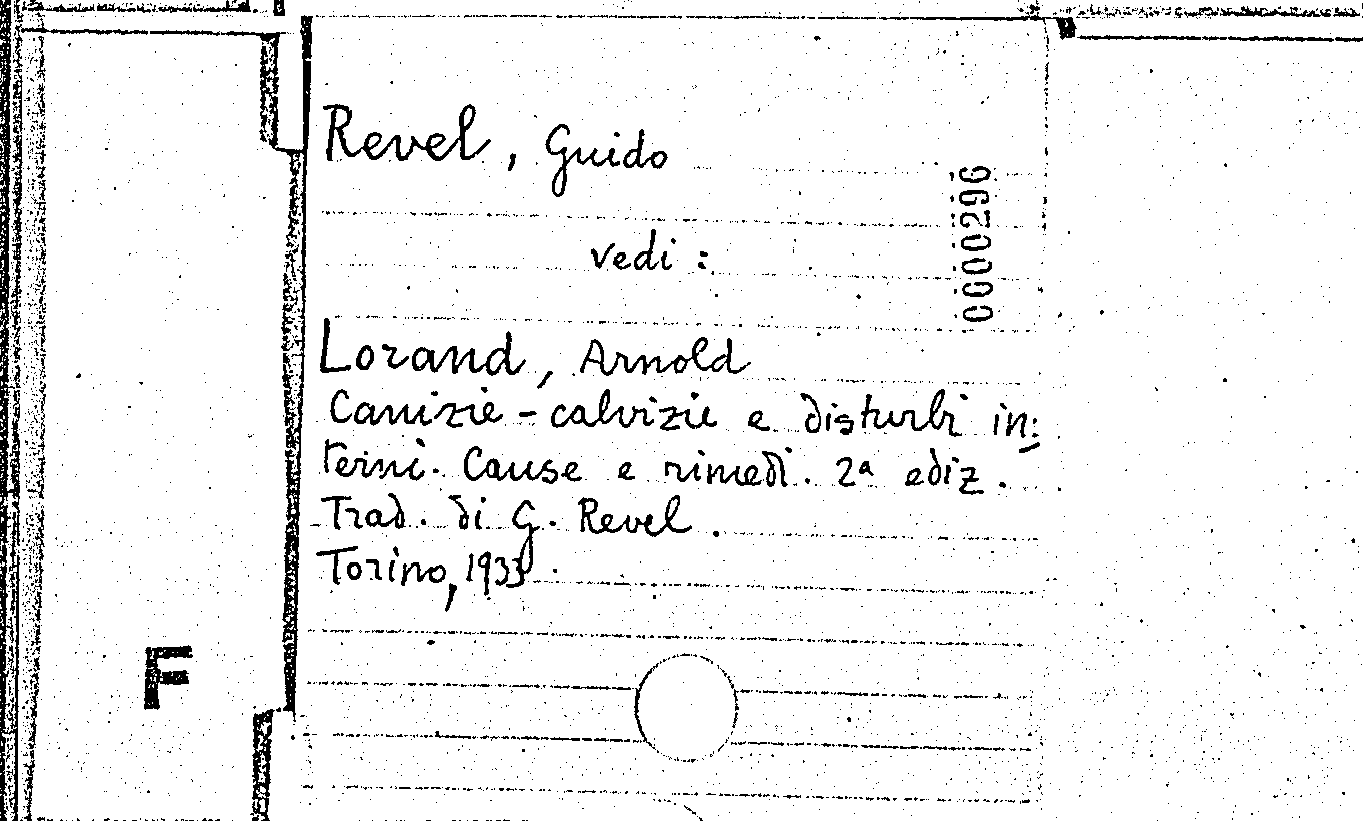 Revel, Guido
0000296
vedi :
Lorand, Arnold
Canizie - calvizie e disturbi in=
terni. Cause e rimedi. 2ª ediz.
Trad. di G. Revel.
Torino, 1933.
F